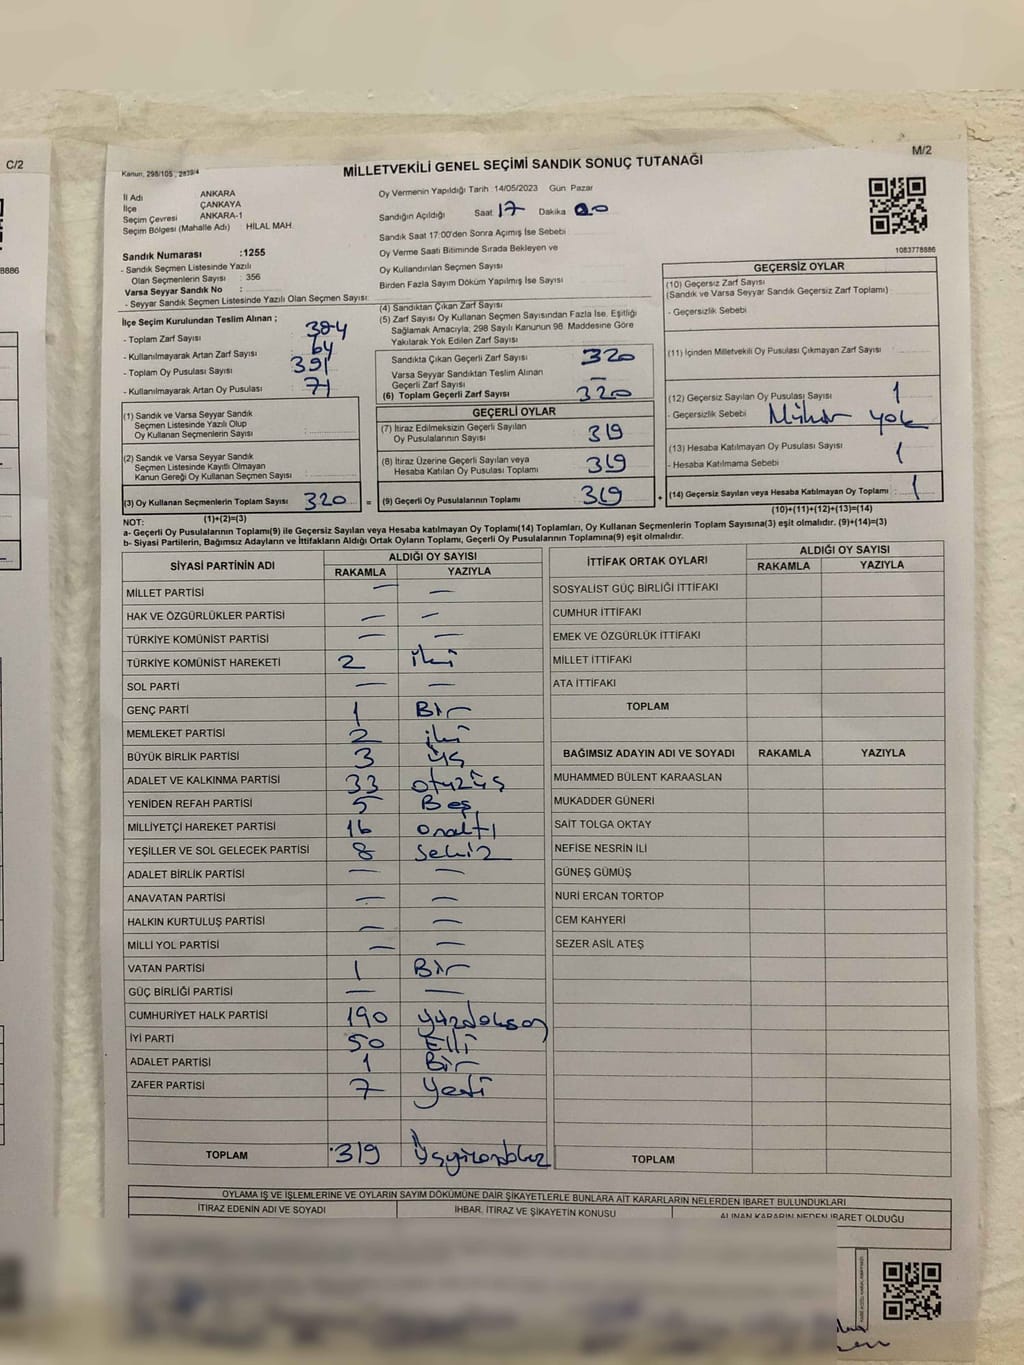 C/2
M/2
Kanun, 298/105 ; 2839/4
MİLLETVEKİLİ GENEL SEÇİMİ SANDIK SONUÇ TUTANAĞI
İl Adı ANKARA
İlçe ÇANKAYA
Seçim Çevresi ANKARA-1
Seçim Bölgesi (Mahalle Adı) HİLAL MAH.
Oy Vermenin Yapıldığı Tarih 14/05/2023 Gün Pazar
Sandığın Açıldığı Saat 17 Dakika 00
Sandık Saat 17:00'den Sonra Açımış İse Sebebi
Oy Verme Saati Bitiminde Sırada Bekleyen ve
Oy Kullandırılan Seçmen Sayısı
Birden Fazla Sayım Döküm Yapılmış İse Sayısı
1083778886
8886
Sandık Numarası :1255
- Sandık Seçmen Listesinde Yazılı
Olan Seçmenlerin Sayısı : 356
Varsa Seyyar Sandık No :
- Seyyar Sandık Seçmen Listesinde Yazılı Olan Seçmen Sayısı:
İlçe Seçim Kurulundan Teslim Alınan ;
- Toplam Zarf Sayısı 384
- Kullanılmayarak Artan Zarf Sayısı 64
- Toplam Oy Pusulası Sayısı 391
- Kullanılmayarak Artan Oy Pusulası 71
(1) Sandık ve Varsa Seyyar Sandık
Seçmen Listesinde Yazılı Olup
Oy Kullanan Seçmenlerin Sayısı
(2) Sandık ve Varsa Seyyar Sandık
Seçmen Listesinde Kayıtlı Olmayan
Kanun Gereği Oy Kullanan Seçmen Sayısı
(3) Oy Kullanan Seçmenlerin Toplam Sayısı 320 =
(1)+(2)=(3)
(4) Sandıktan Çıkan Zarf Sayısı
(5) Zarf Sayısı Oy Kullanan Seçmen Sayısından Fazla İse, Eşitliği
Sağlamak Amacıyla; 298 Sayılı Kanunun 98. Maddesine Göre
Yakılarak Yok Edilen Zarf Sayısı
Sandıkta Çıkan Geçerli Zarf Sayısı 320
Varsa Seyyar Sandıktan Teslim Alınan
Geçerli Zarf Sayısı —
(6) Toplam Geçerli Zarf Sayısı 320
GEÇERLİ OYLAR
(7) İtiraz Edilmeksizin Geçerli Sayılan
Oy Pusulalarının Sayısı 319
(8) İtiraz Üzerine Geçerli Sayılan veya
Hesaba Katılan Oy Pusulası Toplamı 319
(9) Geçerli Oy Pusulalarının Toplamı 319 +
GEÇERSİZ OYLAR
(10) Geçersiz Zarf Sayısı
(Sandık ve Varsa Seyyar Sandık Geçersiz Zarf Toplamı)
- Geçersizlik Sebebi
(11) İçinden Milletvekili Oy Pusulası Çıkmayan Zarf Sayısı
(12) Geçersiz Sayılan Oy Pusulası Sayısı 1
- Geçersizlik Sebebi Mühür yok
(13) Hesaba Katılmayan Oy Pusulası Sayısı 1
- Hesaba Katılmama Sebebi
(14) Geçersiz Sayılan veya Hesaba Katılmayan Oy Toplamı 1
(10)+(11)+(12)+(13)=(14)
NOT:
a- Geçerli Oy Pusulalarının Toplamı(9) ile Geçersiz Sayılan veya Hesaba katılmayan Oy Toplamı(14) Toplamları, Oy Kullanan Seçmenlerin Toplam Sayısına(3) eşit olmalıdır. (9)+(14)=(3)
b- Siyasi Partilerin, Bağımsız Adayların ve İttifakların Aldığı Ortak Oyların Toplamı, Geçerli Oy Pusulalarının Toplamına(9) eşit olmalıdır.
SİYASİ PARTİNİN ADI ALDIĞI OY SAYISI
RAKAMLA YAZIYLA
MİLLET PARTİSİ — —
HAK VE ÖZGÜRLÜKLER PARTİSİ — —
TÜRKİYE KOMÜNİST PARTİSİ — —
TÜRKİYE KOMÜNİST HAREKETİ 2 iki
SOL PARTİ — —
GENÇ PARTİ 1 Bir
MEMLEKET PARTİSİ 2 iki
BÜYÜK BİRLİK PARTİSİ 3 üç
ADALET VE KALKINMA PARTİSİ 33 otuzüç
YENİDEN REFAH PARTİSİ 5 Beş
MİLLİYETÇİ HAREKET PARTİSİ 16 onaltı
YEŞİLLER VE SOL GELECEK PARTİSİ 8 sekiz
ADALET BİRLİK PARTİSİ — —
ANAVATAN PARTİSİ — —
HALKIN KURTULUŞ PARTİSİ — —
MİLLİ YOL PARTİSİ — —
VATAN PARTİSİ 1 Bir
GÜÇ BİRLİĞİ PARTİSİ — —
CUMHURİYET HALK PARTİSİ 190 yüzdoksan
İYİ PARTİ 50 Elli
ADALET PARTİSİ 1 Bir
ZAFER PARTİSİ 7 yedi
TOPLAM 319 Üçyüzondokuz
İTTİFAK ORTAK OYLARI ALDIĞI OY SAYISI
RAKAMLA YAZIYLA
SOSYALİST GÜÇ BİRLİĞİ İTTİFAKI
CUMHUR İTTİFAKI
EMEK VE ÖZGÜRLÜK İTTİFAKI
MİLLET İTTİFAKI
ATA İTTİFAKI
TOPLAM
BAĞIMSIZ ADAYIN ADI VE SOYADI RAKAMLA YAZIYLA
MUHAMMED BÜLENT KARAASLAN
MUKADDER GÜNERİ
SAİT TOLGA OKTAY
NEFİSE NESRİN İLİ
GÜNEŞ GÜMÜŞ
NURİ ERCAN TORTOP
CEM KAHYERİ
SEZER ASİL ATEŞ
TOPLAM
OYLAMA İŞ VE İŞLEMLERİNE VE OYLARIN SAYIM DÖKÜMÜNE DAİR ŞİKAYETLERLE BUNLARA AİT KARARLARIN NELERDEN İBARET BULUNDUKLARI
İTİRAZ EDENİN ADI VE SOYADI İHBAR, İTİRAZ VE ŞİKAYETİN KONUSU ALINAN KARARIN NEDEN İBARET OLDUĞU